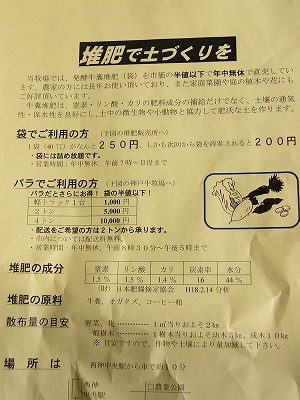 堆肥で土づくりを
当牧場では、発酵牛糞堆肥（袋）を市価の半値以下で年中無休で直売してい
ます。農家の方には長年お使い頂いており、また家庭菜園や庭の植木や花にも
ご好評頂いています。
牛糞堆肥は、窒素・リン酸・カリの肥料成分の補給だけでなく、土壌の通気
性・保水性を良好にし、土中の微生物や小動物と協力して肥沃な土を作ります。
袋でご利用の方 （下図の堆肥販売所へ）
1袋（40㍑）がなんと250円、しかも次回から袋を持参されると200円
・袋には詰め放題です。
・営業時間：年中無休、午前7時～日没まで
バラでご利用の方（下図の神戸牧場へ）
バラだとさらにお得！ 袋の半値以下！
軽トラック1台 1,000円
2トン 5,000円
4トン 10,000円
・配送をご希望の方は2トンから承ります。
・市内については配送料無料。
・営業時間：年中無休、午前8時30分～午後5時まで
堆肥の成分 窒素 リン酸 カリ 炭素率 水分
1.5% 1.5% 1.4% 16 44%
（財）日本肥糧検定協会 H18.2.14分析
堆肥の原料 牛糞、オガクズ、コーヒー粕
散布量の目安 野菜、花……………1㎡当りおよそ2kg
一般樹木……………1樹木当りおよそ幼木5kg、成木10kg
※目安ですので、作物や土壌により量加減して下さい。
場所は 西神中央駅から車で約10分
西神
中央駅
農業公園